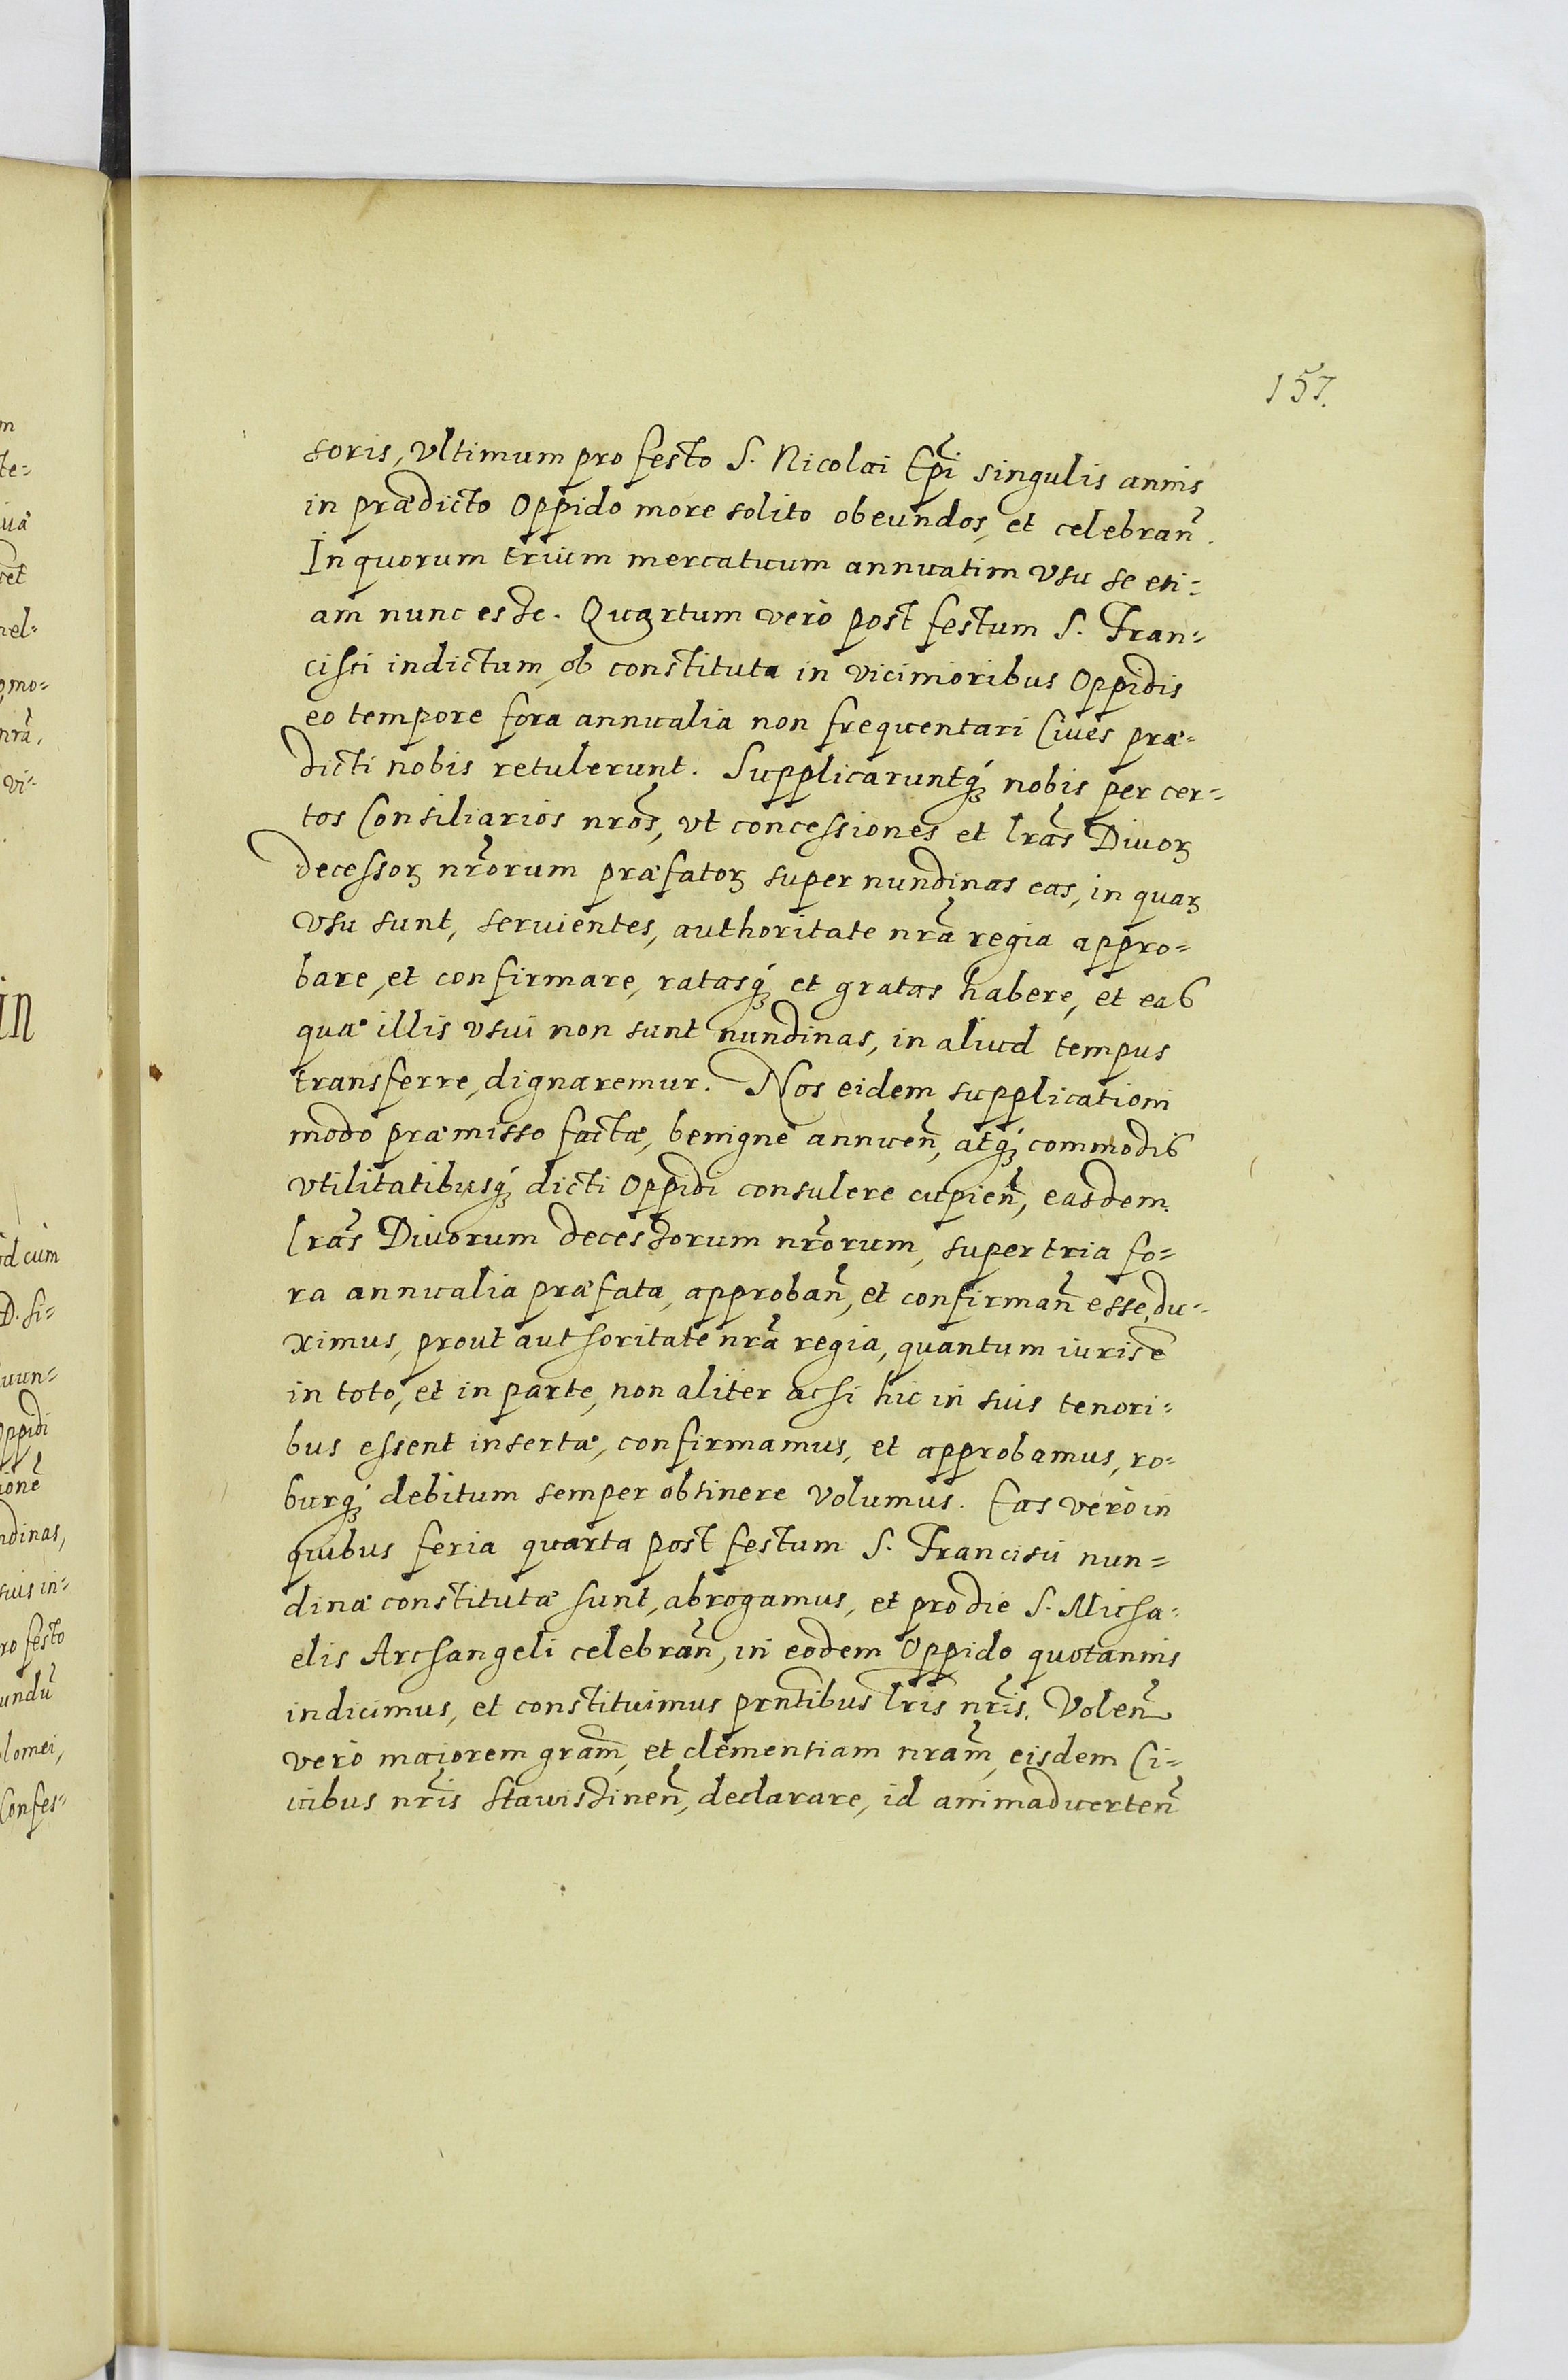 157.
soris, Vltimum pro festo S. Nicolai Ep̃i singulis annis
in prædicto Oppido more solito obeundos, et celebrañ.
In quorum trium mercatuum annuatim vsu se eti=
am nunc esse. Quartum verò post festum S. Fran=
cisci indictum, ob constituta in vicinioribus Oppidis
eo tempore fora annualia non frequentari Ciues præ=
dicti nobis retulerunt. Supplicaruntq́ꝫ nobis per cer=
tos Consiliarios nr̃os, vt concessiones et lr̃as Diuoꝝ
decessoꝝ nr̃orum præfatoꝝ super nundinas eas, in quaꝝ
vsu sunt, seruientes, authoritate nr̃a regia appro=
bare, et confirmare, ratasq́ꝫ et gratas habere, et eas
quæ illis vsui non sunt nundinas, in aliud tempus
transferre, dignaremur. Nos eidem supplicationi
modo præmisso factæ, benignè annueñ, atq́ꝫ commodis
vtilitatibusq́ꝫ dicti Oppidi consulere cupieñ, easdem
lr̃as Diuorum decessorum nr̃orum, super tria fo=
ra annualia præfata, approbañ, et confirmañ esse du=
ximus, prout authoritate nr̃a regia, quantum iuris ẽ
in toto, et in parte, non aliter acsi hic in suis tenori=
bus essent insertæ, confirmamus, et approbamus, ro=
burq́ꝫ debitum semper obtinere volumus. Eas verò in
quibus feria quarta post festum S. Francisci nun=
dinæ constitutæ sunt, abrogamus, et pro die S. Micha=
elis Archangeli celebrañ, in eodem Oppido quotannis
indicimus, et constituimus prñtibus lr̃is nr̃is. Voleñ
verò maiorem grãm, et clementiam nr̃am, eisdem Ci=
uibus nr̃is Stawisdineñ, declarare, id animaduerteñ